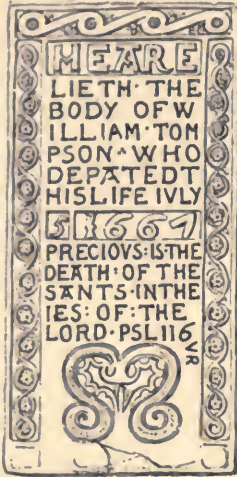 HEARE
LIETH·THE
BODY OF W
ILLIAM·TOM
PSON·WHO
DEPATED T
HIS LIFE IVLY
5 1667
PRECIOVS:IS THE
DEATH:OF THE
SANTS·IN THE
IES:OF:THE
LORD·PSL 116
VR